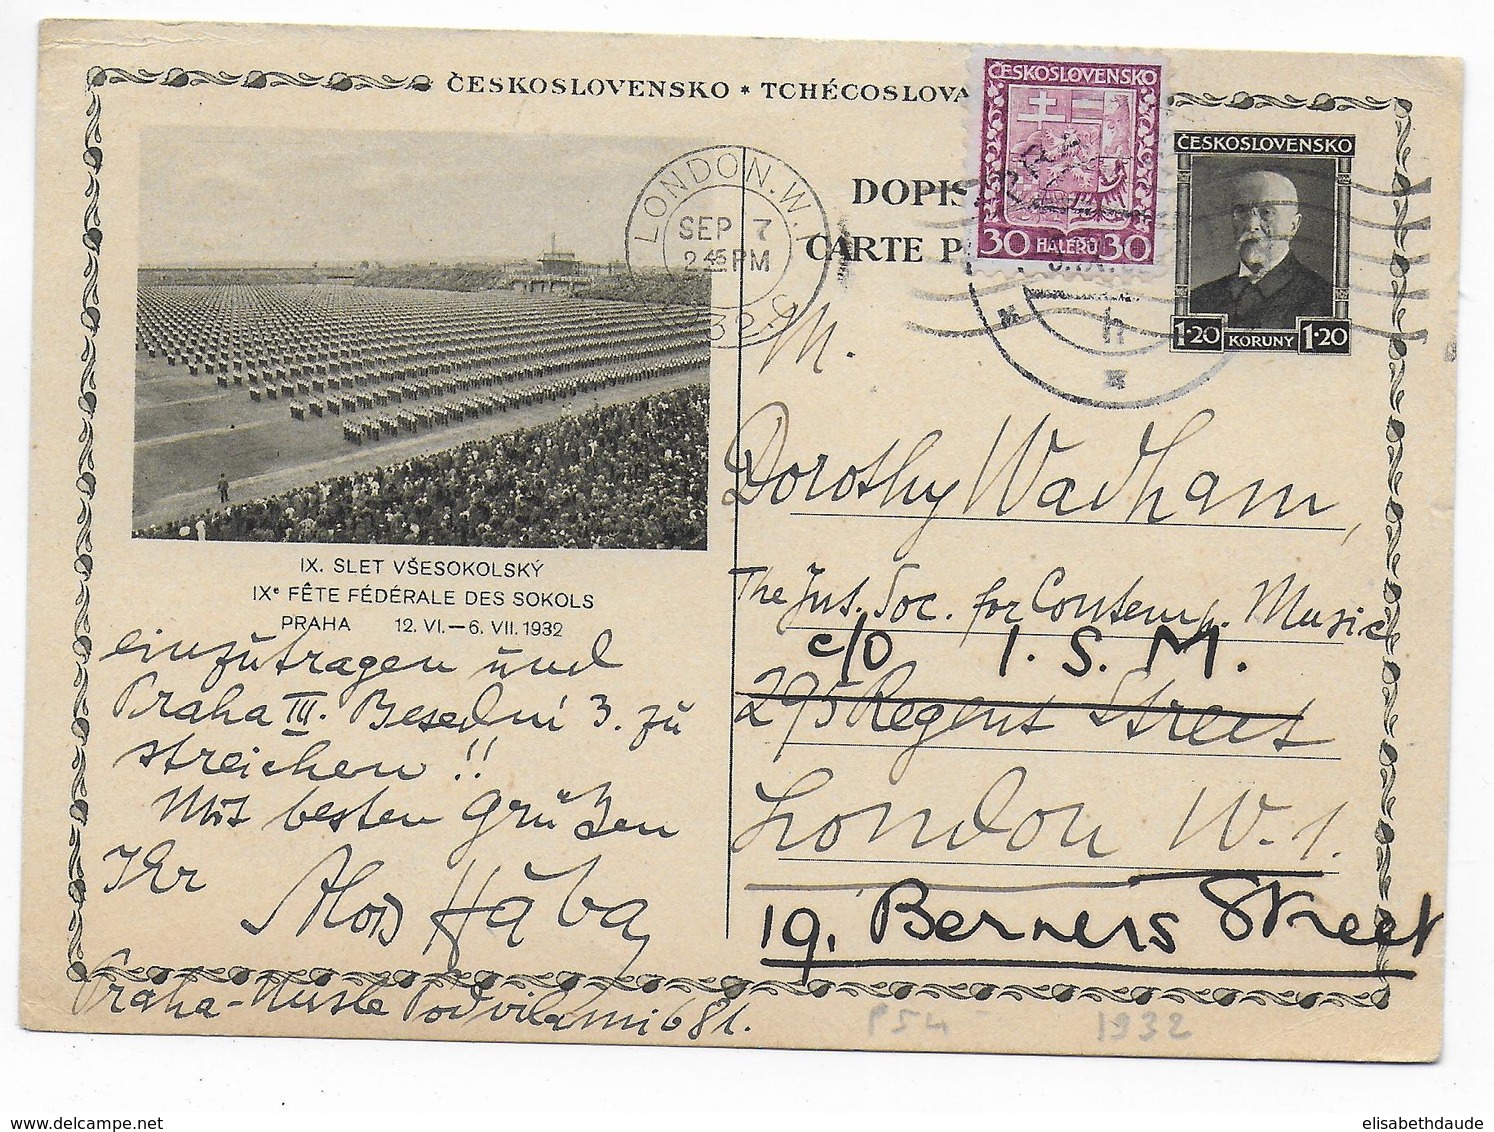 ČESKOSLOVENSKO * TCHÉCOSLOVA
ČESKOSLOVENSKO
30 HALÉŘŮ 30
ČESKOSLOVENSKO
1·20 KORUNY 1·20
LONDON.W.1
SEP 7
2 45 PM
32
DOPIS
CARTE P
h
IX. SLET VŠESOKOLSKÝ
IXe FÊTE FÉDÉRALE DES SOKOLS
PRAHA 12. VI.—6. VII. 1932
einzutragen und
Praha III. Besední 3. zu
streichen!!
Mit besten Grüßen
Ihr
Alois Hába
Praha-Nusle Podvilami 681.
M.
Dorothy Wadham,
The Int. Soc. for Contemp. Music
c/o I. S. M.
295 Regent Street
London W. 1.
19. Berners Street
P54 - 1932
elisabethdaude